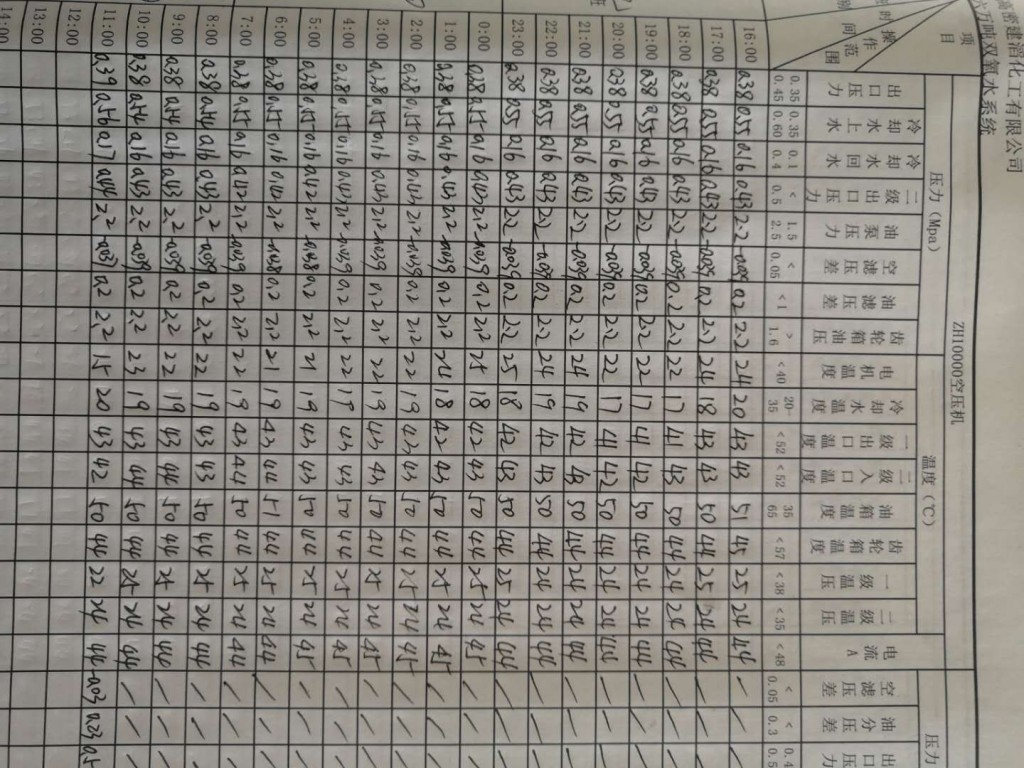 高密建滔化工有限公司
六万吨双氧水系统
项目 操作范围 时间
ZH10000空压机
压力(Mpa) 温度(℃) 压力
出口压力 冷却水上水 冷却水回水 二级出口压力 油泵压力 空滤压差 油滤压差 齿轮箱油压 电机温度 冷却水温度 一级出口温度 二级入口温度 油箱温度 齿轮箱温度 一级温压 二级温压 电流A 空滤压差 油分压差 出口压
0.35 0.45 0.35 0.60 0.1 0.4 <0.5 1.5 2.5 <0.05 <1 >1.6 <40 20-35 <52 <52 35 65 <57 <38 <35 <48 <0.05 <0.3 0.4 0.5
16:00 0.38 0.55 0.16 0.43 2.2 -0.039 0.2 2.2 24 20 43 43 51 45 25 24 44 / / /
17:00 0.38 0.55 0.16 0.43 2.2 -0.039 0.2 2.2 24 18 43 43 50 44 25 24 44 / / /
18:00 0.38 0.55 0.16 0.43 2.2 -0.039 0.2 2.2 22 17 41 43 50 44 24 24 44 / / /
19:00 0.38 0.55 0.16 0.43 2.2 -0.039 0.2 2.2 22 17 41 42 50 44 24 24 44 / / /
20:00 0.38 0.55 0.16 0.43 2.2 -0.039 0.2 2.2 22 17 41 42 50 44 24 24 44 / / /
21:00 0.38 0.55 0.16 0.43 2.2 -0.039 0.2 2.2 24 19 42 43 50 44 24 24 44 / / /
22:00 0.38 0.55 0.16 0.43 2.2 -0.039 0.2 2.2 24 19 42 43 50 44 24 24 44 / / /
23:00 0.38 0.55 0.16 0.43 2.2 -0.039 0.2 2.2 25 18 42 43 50 44 25 24 44 / / /
0:00 0.38 0.55 0.16 0.43 2.2 -0.039 0.2 2.2 25 18 42 43 50 44 25 24 45 / / /
1:00 0.38 0.55 0.16 0.43 2.2 -0.039 0.2 2.2 24 18 42 43 50 44 25 24 45 / / /
2:00 0.38 0.55 0.16 0.43 2.2 -0.039 0.2 2.2 22 19 43 43 50 44 25 24 45 / / /
3:00 0.38 0.55 0.16 0.43 2.2 -0.039 0.2 2.2 22 19 43 43 50 44 25 24 45 / / /
4:00 0.38 0.55 0.16 0.43 2.2 -0.049 0.2 2.2 22 19 43 43 50 44 25 24 45 / / /
5:00 0.38 0.55 0.16 0.42 2.2 -0.048 0.2 2.2 21 19 43 43 50 44 25 24 45 / / /
6:00 0.38 0.55 0.16 0.42 2.2 -0.048 0.2 2.2 21 19 43 44 51 44 25 24 44 / / /
7:00 0.38 0.55 0.16 0.42 2.2 -0.039 0.2 2.2 22 19 43 44 50 44 25 24 44 / / /
8:00 0.38 0.16 0.43 2.2 -0.039 0.2 2.2 22 19 43 43 50 44 25 24 44 / / /
9:00 0.38 0.16 0.43 2.2 -0.039 0.2 2.2 22 19 43 44 50 44 25 24 / / /
10:00 0.38 0.16 0.43 2.2 -0.039 0.2 2.2 23 19 43 44 50 44 25 24 44 / / /
11:00 0.39 0.56 0.17 0.44 2.2 0.2 2.2 15 20 43 42 50 44 22 24 44 -0.03 0.23
12:00
13:00
14:00